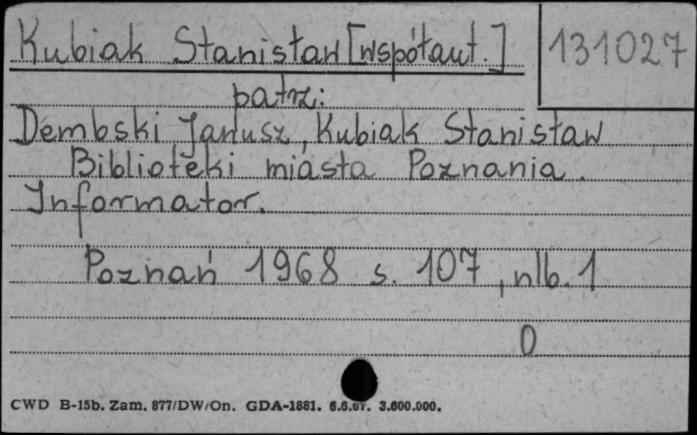 Kubiak Stanisław [współaut.] 131027
patrz:
Dembski Janusz, Kubiak Stanisław
Biblioteki miasta Poznania.
Informator.
Poznań 1968 s. 107, nlb. 1
0
CWD B-15b. Zam. 877/DW/On. GDA-1881. 6.6.67. 3.600.000.